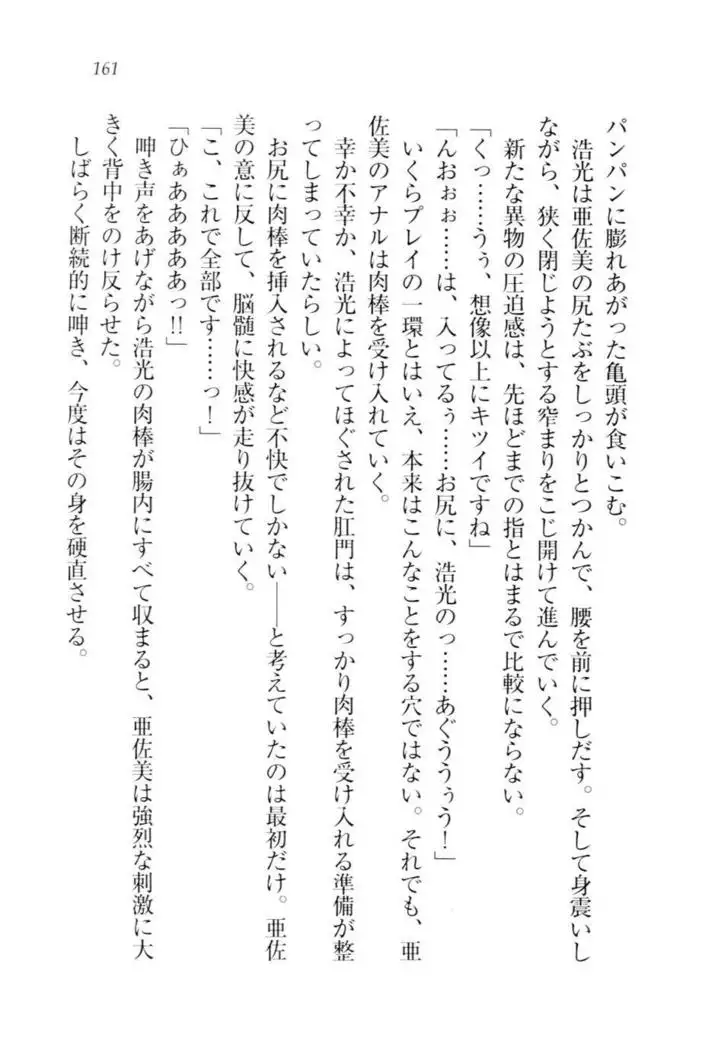 161
パンパンに膨れあがった亀頭が食いこむ。
浩光は亜佐美の尻たぶをしっかりとつかんで、腰を前に押しだす。そして身震いし
ながら、狭く閉じようとする窄まりをこじ開けて進んでいく。
新たな異物の圧迫感は、先ほどまでの指とはまるで比較にならない。
「くっ……うぅ、想像以上にキツイですね」
「んおぉぉ……は、入ってるぅ……お尻に、浩光のっ……あぐううぅう！」
いくらプレイの一環とはいえ、本来はこんなことをする穴ではない。それでも、亜
佐美のアナルは肉棒を受け入れていく。
幸か不幸か、浩光によってほぐされた肛門は、すっかり肉棒を受け入れる準備が整
ってしまっていたらしい。
お尻に肉棒を挿入されるなど不快でしかない――と考えていたのは最初だけ。亜佐
美の意に反して、脳髄に快感が走り抜けていく。
「こ、これで全部です……っ！」
「ひぁああああぁっ!!」
呻き声をあげながら浩光の肉棒が腸内にすべて収まると、亜佐美は強烈な刺激に大
きく背中をのけ反らせた。
しばらく断続的に呻き、今度はその身を硬直させる。